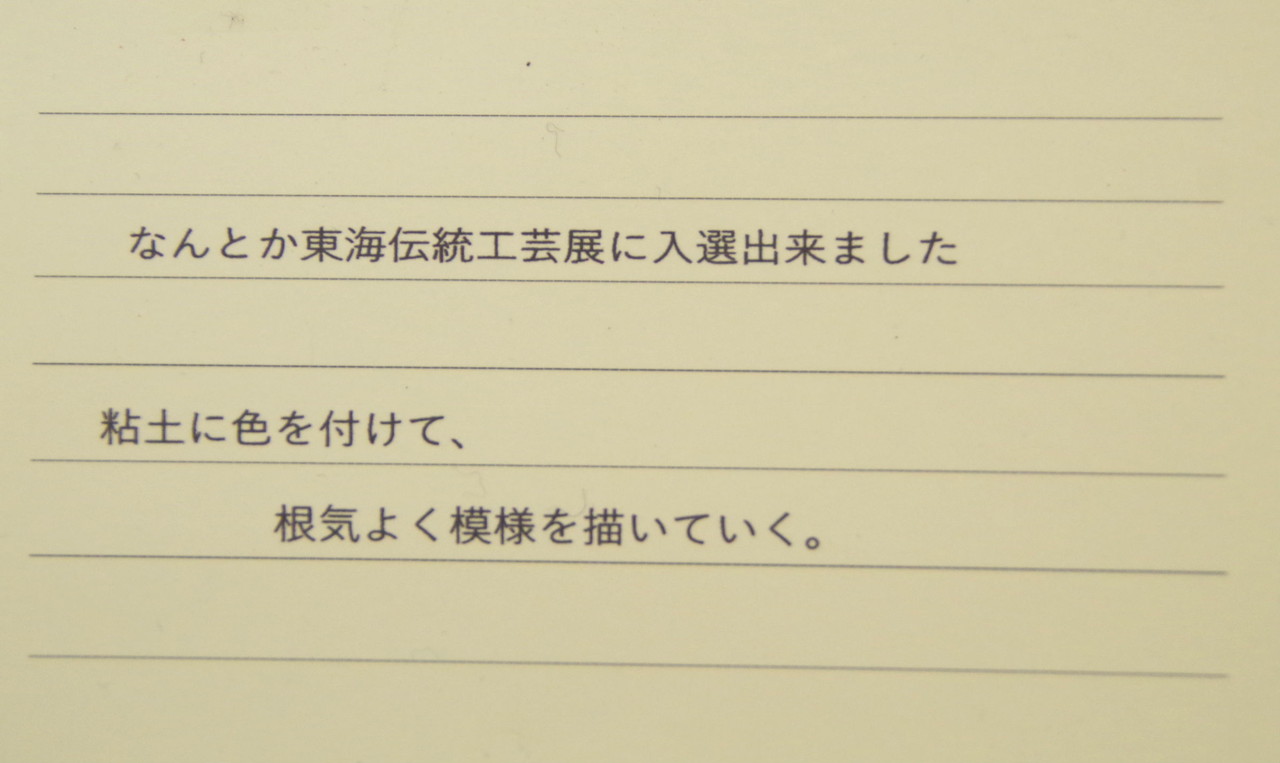 なんとか東海伝統工芸展に入選出来ました
粘土に色を付けて、
根気よく模様を描いていく。